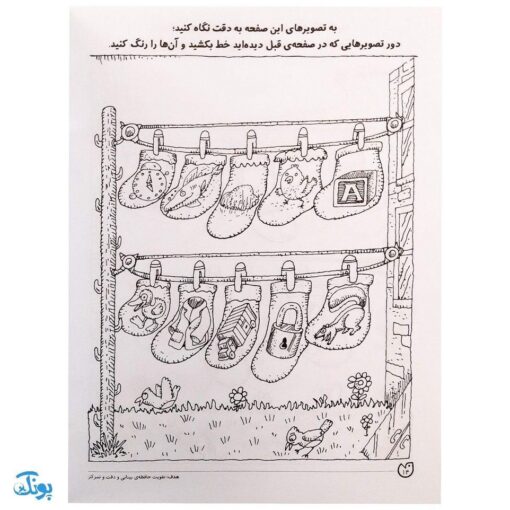 به تصویرهای این صفحه به دقت نگاه کنید؛
دور تصویرهایی که در صفحه‌ی قبل دیده‌اید خط بکشید و آن‌ها را رنگ کنید.
A
هدف: تقویت حافظه‌ی بینایی و دقت و تمرکز
۱۴
پونک